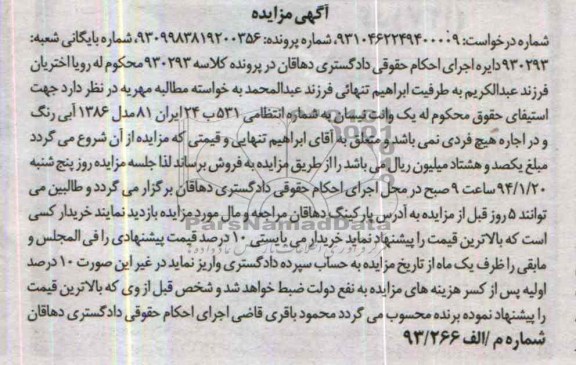 آگهی مزایده
شماره درخواست: ۹۳۱۰۴۶۲۲۴۹۴۰۰۰۰۹، شماره پرونده: ۹۳۰۹۹۸۳۸۱۹۲۰۰۳۵۶، شماره بایگانی شعبه:
۹۳۰۲۹۳ دایره اجرای احکام حقوقی دادگستری دهاقان در پرونده کلاسه ۹۳۰۲۹۳ محکوم له رویا اختریان
فرزند عبدالکریم به طرفیت ابراهیم تنهائی فرزند عبدالمحمد به خواسته مطالبه مهریه در نظر دارد جهت
استیفای حقوق محکوم له یک وانت نیسان به شماره انتظامی ۵۳۱ب ۲۴ ایران ۸۱ مدل ۱۳۸۶ آبی رنگ
و در اجاره هیچ فردی نمی باشد و متعلق به آقای ابراهیم تنهایی و قیمتی که مزایده از آن شروع می گردد
مبلغ یکصد و هشتاد میلیون ریال می باشد را از طریق مزایده به فروش برساند لذا جلسه مزایده روز پنج شنبه
۹۴/۱/۲۰ ساعت ۹ صبح در محل اجرای احکام حقوقی دادگستری دهاقان برگزار می گردد و طالبین می
توانند ۵ روز قبل از مزایده به آدرس پارکینگ دهاقان مراجعه و مال مورد مزایده بازدید نمایند خریدار کسی
است که بالاترین قیمت را پیشنهاد نماید خریدار می بایستی ۱۰ درصد قیمت پیشنهادی را فی المجلس و
مابقی را ظرف یک ماه از تاریخ مزایده به حساب سپرده دادگستری واریز نماید در غیر این صورت ۱۰ درصد
اولیه پس از کسر هزینه های مزایده به نفع دولت ضبط خواهد شد و شخص قبل از وی که بالاترین قیمت
را پیشنهاد نموده برنده محسوب می گردد محمود باقری قاضی اجرای احکام حقوقی دادگستری دهاقان
شماره م /الف ۹۳/۲۶۶
ParsNamadData